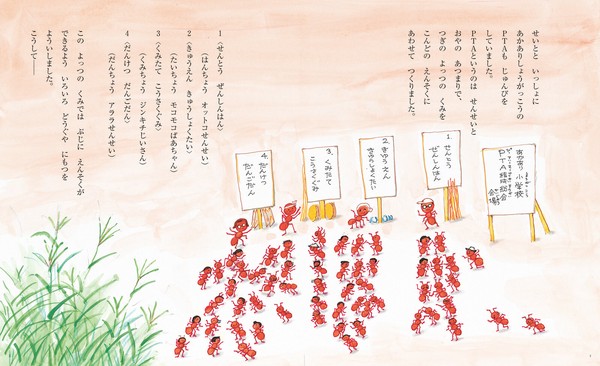 せいとと いっしょに
あかありしょうがっこうの
PTAも じゅんびを
していました。
PTAというのは せんせいと
おやの あつまりで、
つぎの よっつの くみを
こんどの えんそくに
あわせて つくりました。
あかあり小学校
PTA臨時総会
会場
1.せんとう
ぜんしんはん
2.きゅうえん
きゅうしょくたい
3.くみたて
こうさくぐみ
4.だんけつ
だんごだん
1〈せんとう ぜんしんはん〉
(はんちょう オットコせんせい)
2〈きゅうえん きゅうしょくたい〉
(たいちょう モコモコばあちゃん)
3〈くみたて こうさくぐみ〉
(くみちょう ジンキチじいさん)
4〈だんけつ だんごだん〉
(だんちょう アララせんせい)
この よっつの くみでは ぶじに えんそくが
できるよう いろいろ どうぐや にもつを
よういしました。
こうして——